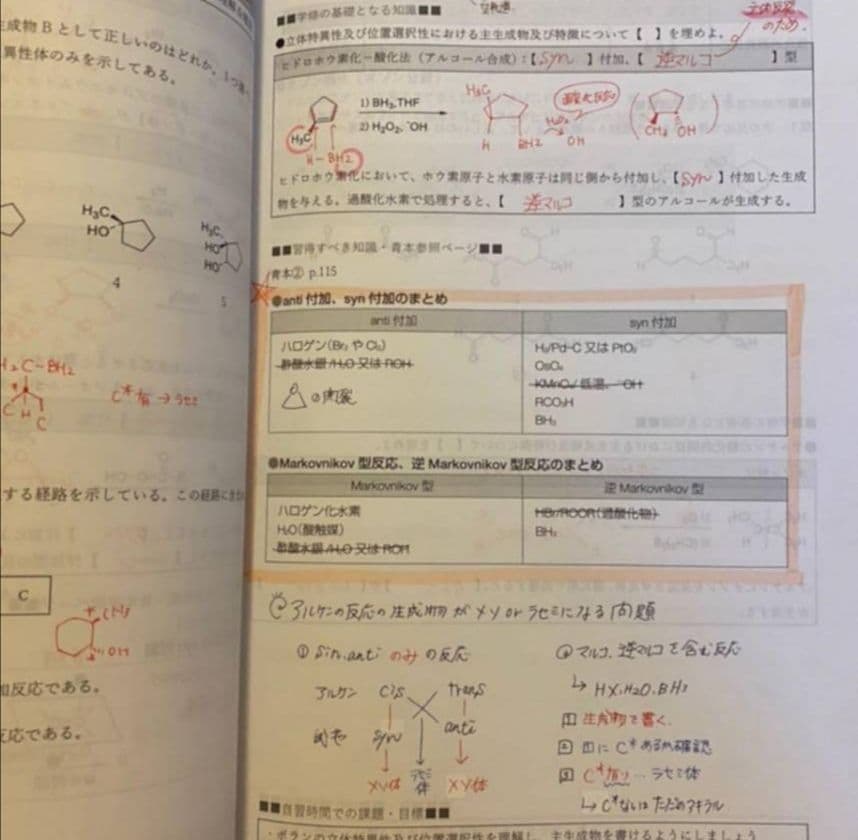 成物Bとして正しいのはどれか。1つ選
異性体のみを示してある。
H₃C
HO
4
H₃C
HO
HO
5
H₂C-BH₂
C H C
C*有→ラセミ
する経路を示している。この経路に
C
CH₃
OH
加反応である。
反応である。
■■学修の基礎となる知識■■
立体反応
のため.
●立体特異性及び位置選択性における主生成物及び特徴について【 】を埋めよ。
ヒドロホウ素化-酸化法（アルコール合成）：【Syn】付加、【逆マルコ】型
H₃C
H-BH2
1) BH₃,THF
2) H₂O₂, ⁻OH
H₃C
H
BH2
H₂O₂
OH
CH₃ OH
ヒドロホウ素化において、ホウ素原子と水素原子は同じ側から付加し、【Syn】付加した生成
物を与える。過酸化水素で処理すると、【逆マルコ】型のアルコールが生成する。
■■習得すべき知識・青本参照ページ■■
青本② p.115
●anti 付加、syn 付加のまとめ
anti 付加
syn 付加
ハロゲン(Br₂ や Cl₂)
酢酸水銀/H₂O 又は ROH
の開裂
H₂/Pd-C 又は PtO₂
OsO₄
KMnO₄/ 低温、⁻OH
RCO₃H
BH₃
●Markovnikov 型反応、逆 Markovnikov 型反応のまとめ
Markovnikov 型
逆 Markovnikov 型
ハロゲン化水素
H₂O(酸触媒)
酢酸水銀/H₂O 又は ROH
HBr/ROOR(過酸化物)
BH₃
アルケンの反応の生成物がメソorラセミになる問題
① Sin.anti のみの反応
アルケン cis trans
付加 syn anti
メソ体 ラセミ体 メソ体
② マルコ、逆マルコを含む反応
↳ HX.H₂O.BH₃
1 生成物を書く.
2 1にC*あるか確認
3 C*有り…ラセミ体
↳ C*ないはただのアキラル
■■自習時間での課題・目標■■
・ボランの立体特異性及び位置選択性を理解し、主生成物を書けるようにしましょう